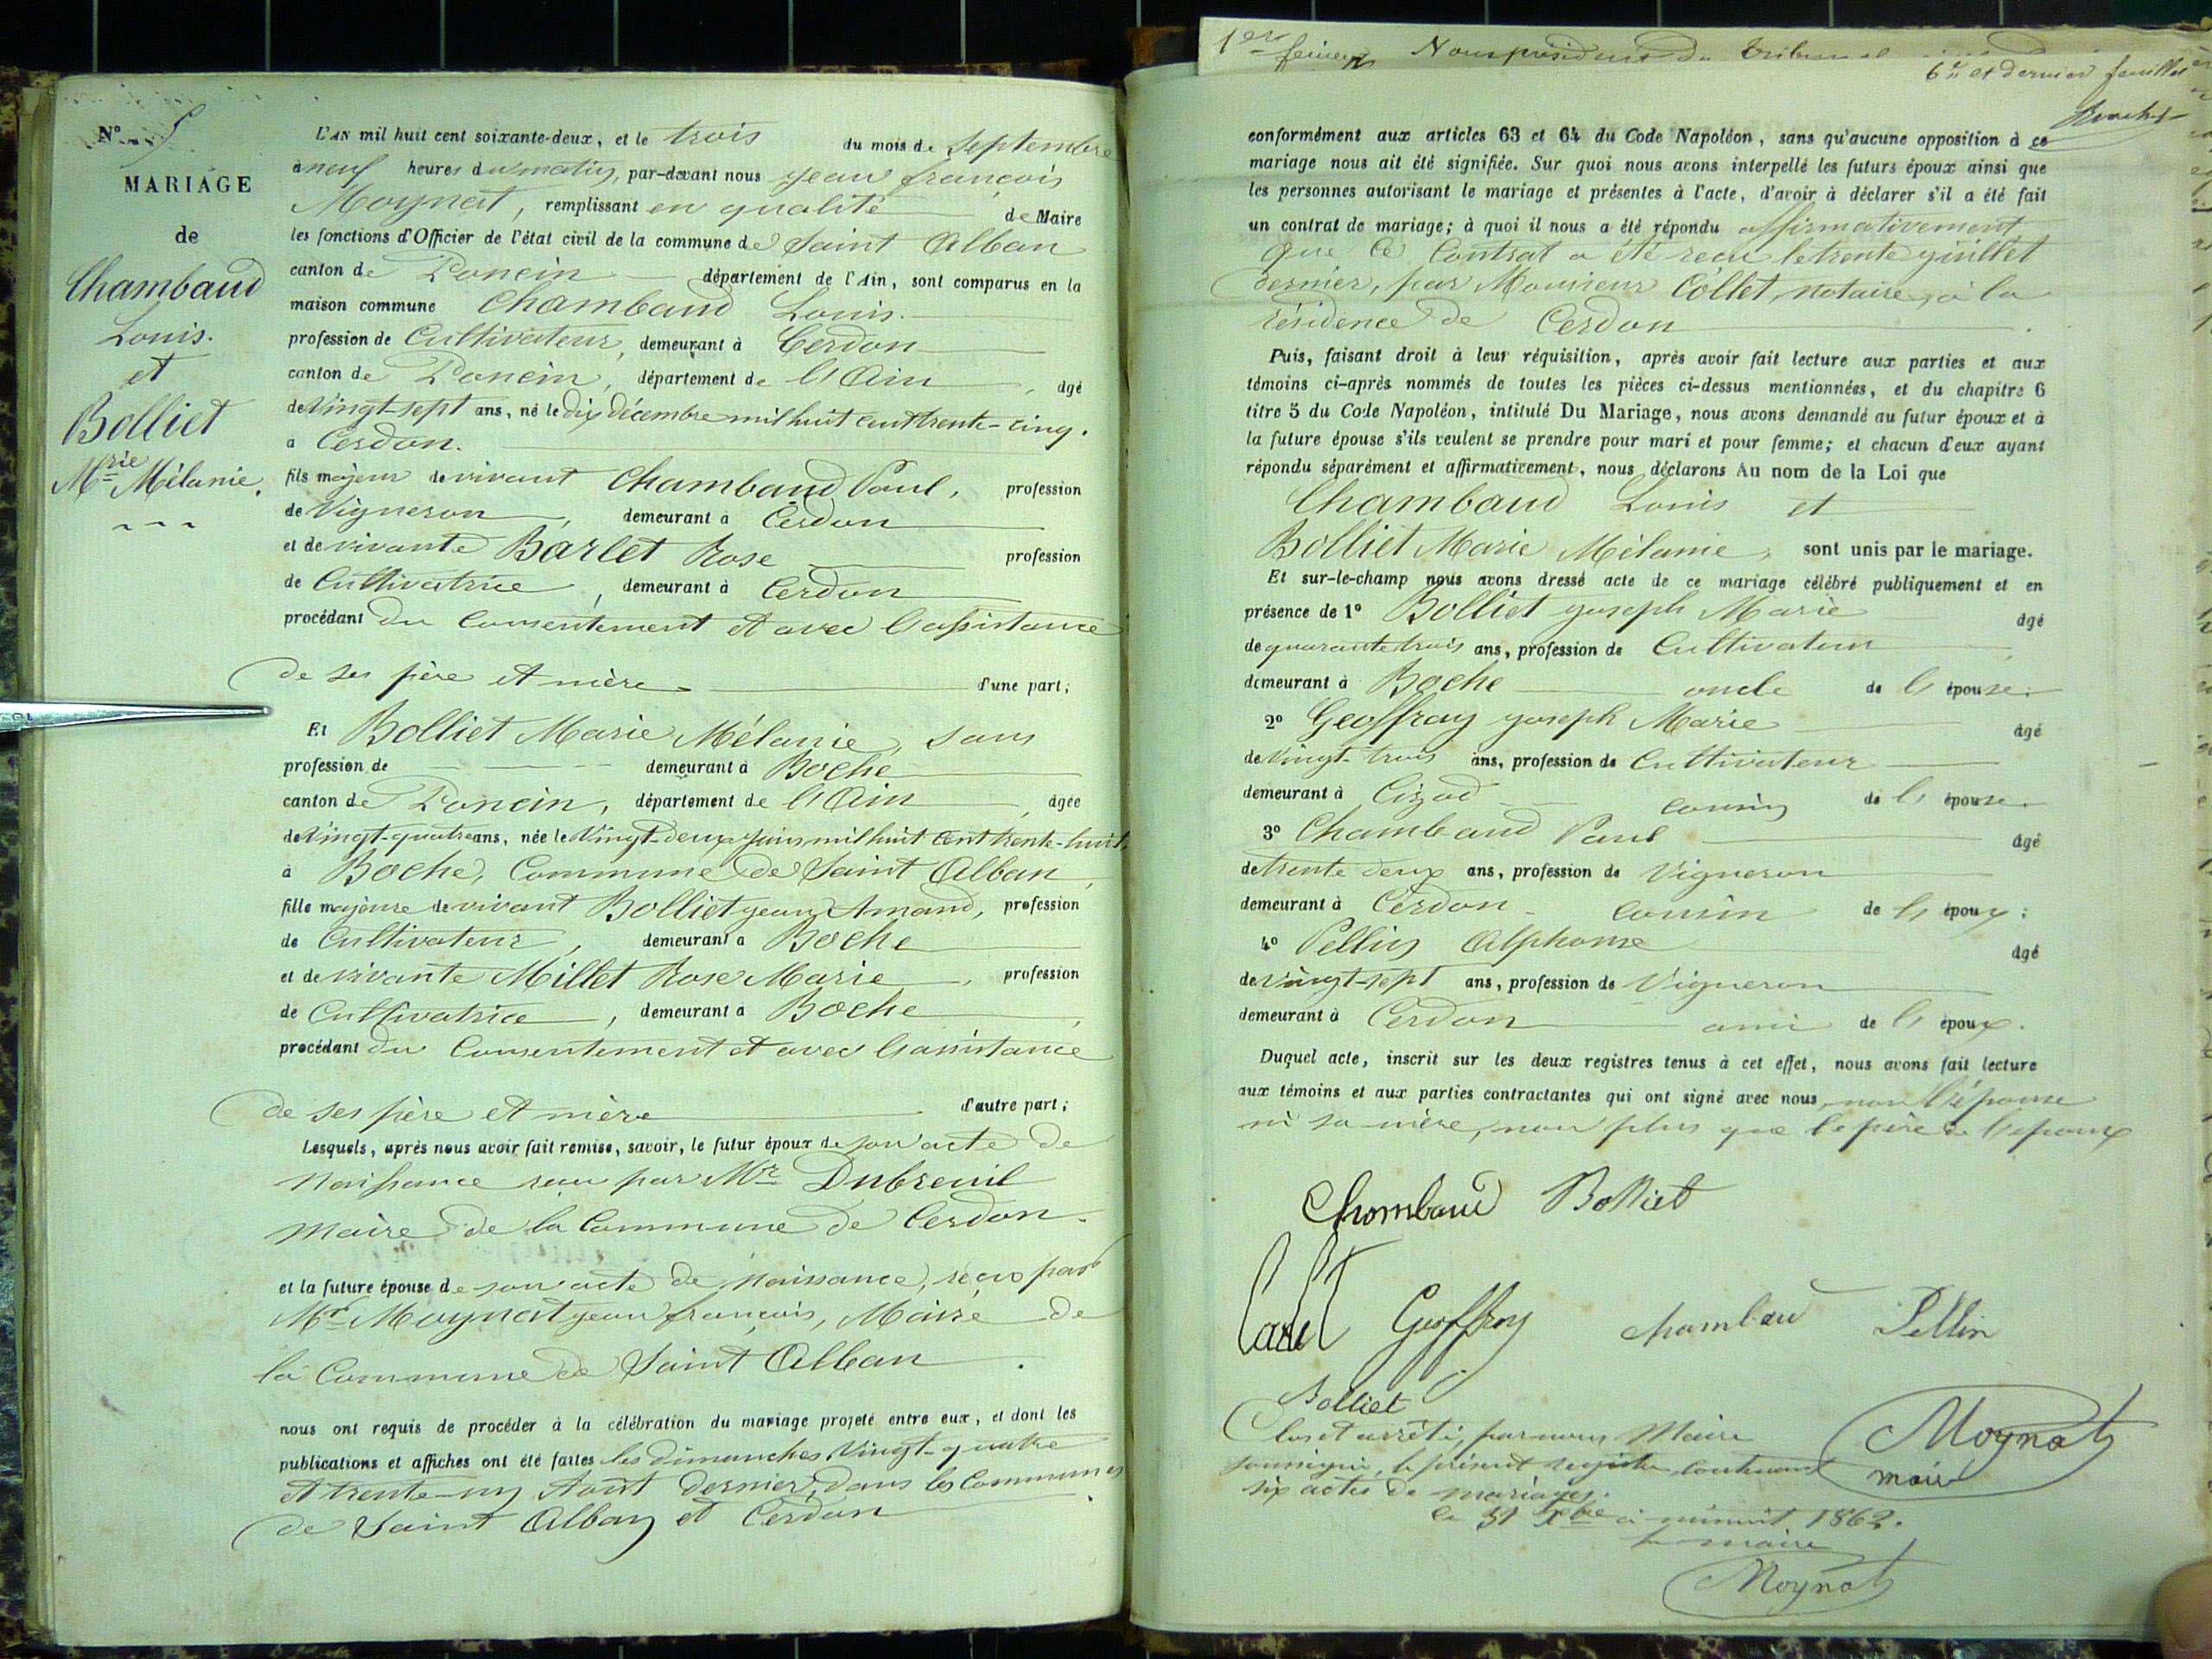 N° 5
MARIAGE
de
Chambaud
Louis.
et
Bolliet
Mrie Mélanie.
L'AN mil huit cent soixante-deux, et le trois du mois de Septembre
à neuf heures du matin, par-devant nous Jean françois
Moynat, remplissant en qualité de Maire
les fonctions d'Officier de l'état civil de la commune de Saint Alban
canton de Poncin département de l'Ain, sont comparus en la
maison commune Chambaud Louis.
profession de Cultivateur, demeurant à Cerdon
canton de Poncin, département de l'Ain, âgé
de vingt-sept ans, né le dix décembre mil huit cent trente-cinq.
à Cerdon.
fils majeur de vivant Chambaud Paul, profession
de Vigneron, demeurant à Cerdon
et de vivante Barlet Rose profession
de Cultivatrice, demeurant à Cerdon
procédant du Consentement et avec l'assistance
de ses père et mère d'une part;
Et Bolliet Marie Mélanie, sans
profession de demeurant à Boche
canton de Poncin, département de l'Ain, âgée
de vingt-quatre ans, née le vingt-deux juin mil huit cent trente-huit
à Boche, Commune de Saint Alban,
fille majeure de vivant Bolliet Jean Amand, profession
de Cultivateur, demeurant à Boche
et de vivante Millet Rose Marie, profession
de Cultivatrice, demeurant à Boche,
procédant du Consentement et avec l'assistance
de ses père et mère d'autre part;
Lesquels, après nous avoir fait remise, savoir, le futur époux de son acte de
Naissance reçu par Mr Dubreuil
Maire de la Commune de Cerdon.
et la future épouse de son acte de Naissance, reçu par
Mr Moynat jean françois, Maire de
la Commune de Saint Alban.
nous ont requis de procéder à la célébration du mariage projeté entre eux, et dont les
publications et affiches ont été faites les dimanches vingt-quatre
et trente-un Août dernier, dans les Communes
de Saint Alban et Cerdon.
1er feuillet Nous président du tribunal
6me et dernier feuillet
conformément aux articles 63 et 64 du Code Napoléon, sans qu'aucune opposition à ce
mariage nous ait été signifiée. Sur quoi nous avons interpellé les futurs époux ainsi que
les personnes autorisant le mariage et présentes à l'acte, d'avoir à déclarer s'il a été fait
un contrat de mariage; à quoi il nous a été répondu affirmativement
que ce Contrat a été reçu le trente juillet
dernier, par Monsieur Collet, notaire, à la
résidence de Cerdon.
Puis, faisant droit à leur réquisition, après avoir fait lecture aux parties et aux
témoins ci-après nommés de toutes les pièces ci-dessus mentionnées, et du chapitre 6
titre 5 du Code Napoléon, intitulé Du Mariage, nous avons demandé au futur époux et à
la future épouse s'ils veulent se prendre pour mari et pour femme; et chacun d'eux ayant
répondu séparément et affirmativement, nous déclarons Au nom de la Loi que
Chambaud Louis et
Bolliet Marie Mélanie, sont unis par le mariage.
Et sur-le-champ nous avons dressé acte de ce mariage célébré publiquement et en
présence de 1° Bolliet Joseph Marie âgé
de quarante trois ans, profession de Cultivateur,
demeurant à Boche oncle de l'épouse;
2° Geoffray Joseph Marie âgé
de vingt-trois ans, profession de Cultivateur
demeurant à Cizod cousin de l'épouse.
3° Chambaud Paul âgé
de trente deux ans, profession de Vigneron
demeurant à Cerdon cousin de l'époux;
4° Pellin Alphonse âgé
de vingt-sept ans, profession de Vigneron
demeurant à Cerdon ami de l'époux.
Duquel acte, inscrit sur les deux registres tenus à cet effet, nous avons fait lecture
aux témoins et aux parties contractantes qui ont signé avec nous, non l'épouse
ni sa mère, non plus que le père de l'époux
Chombaud Bolliet
Geoffroy chambau Pellin
Bolliet
Clos et arrêté, par nous Maire
soussigné, le présent registre, contenant
six actes de mariages.
le 31 Xbre à minuit 1862.
le maire
Moynat
maire
Moynat